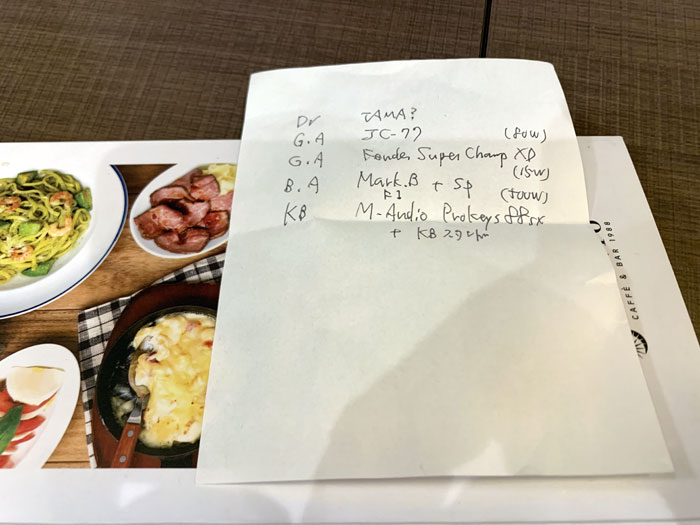 Dr TAMA?
G.A JC-77 (80W)
G.A Fender Super Champ XD
(15W)
B.A Mark.B + SP
F1 (500W)
KB M-Audio Prokeys 88sx
+ KB
CAFFÈ & BAR 1988